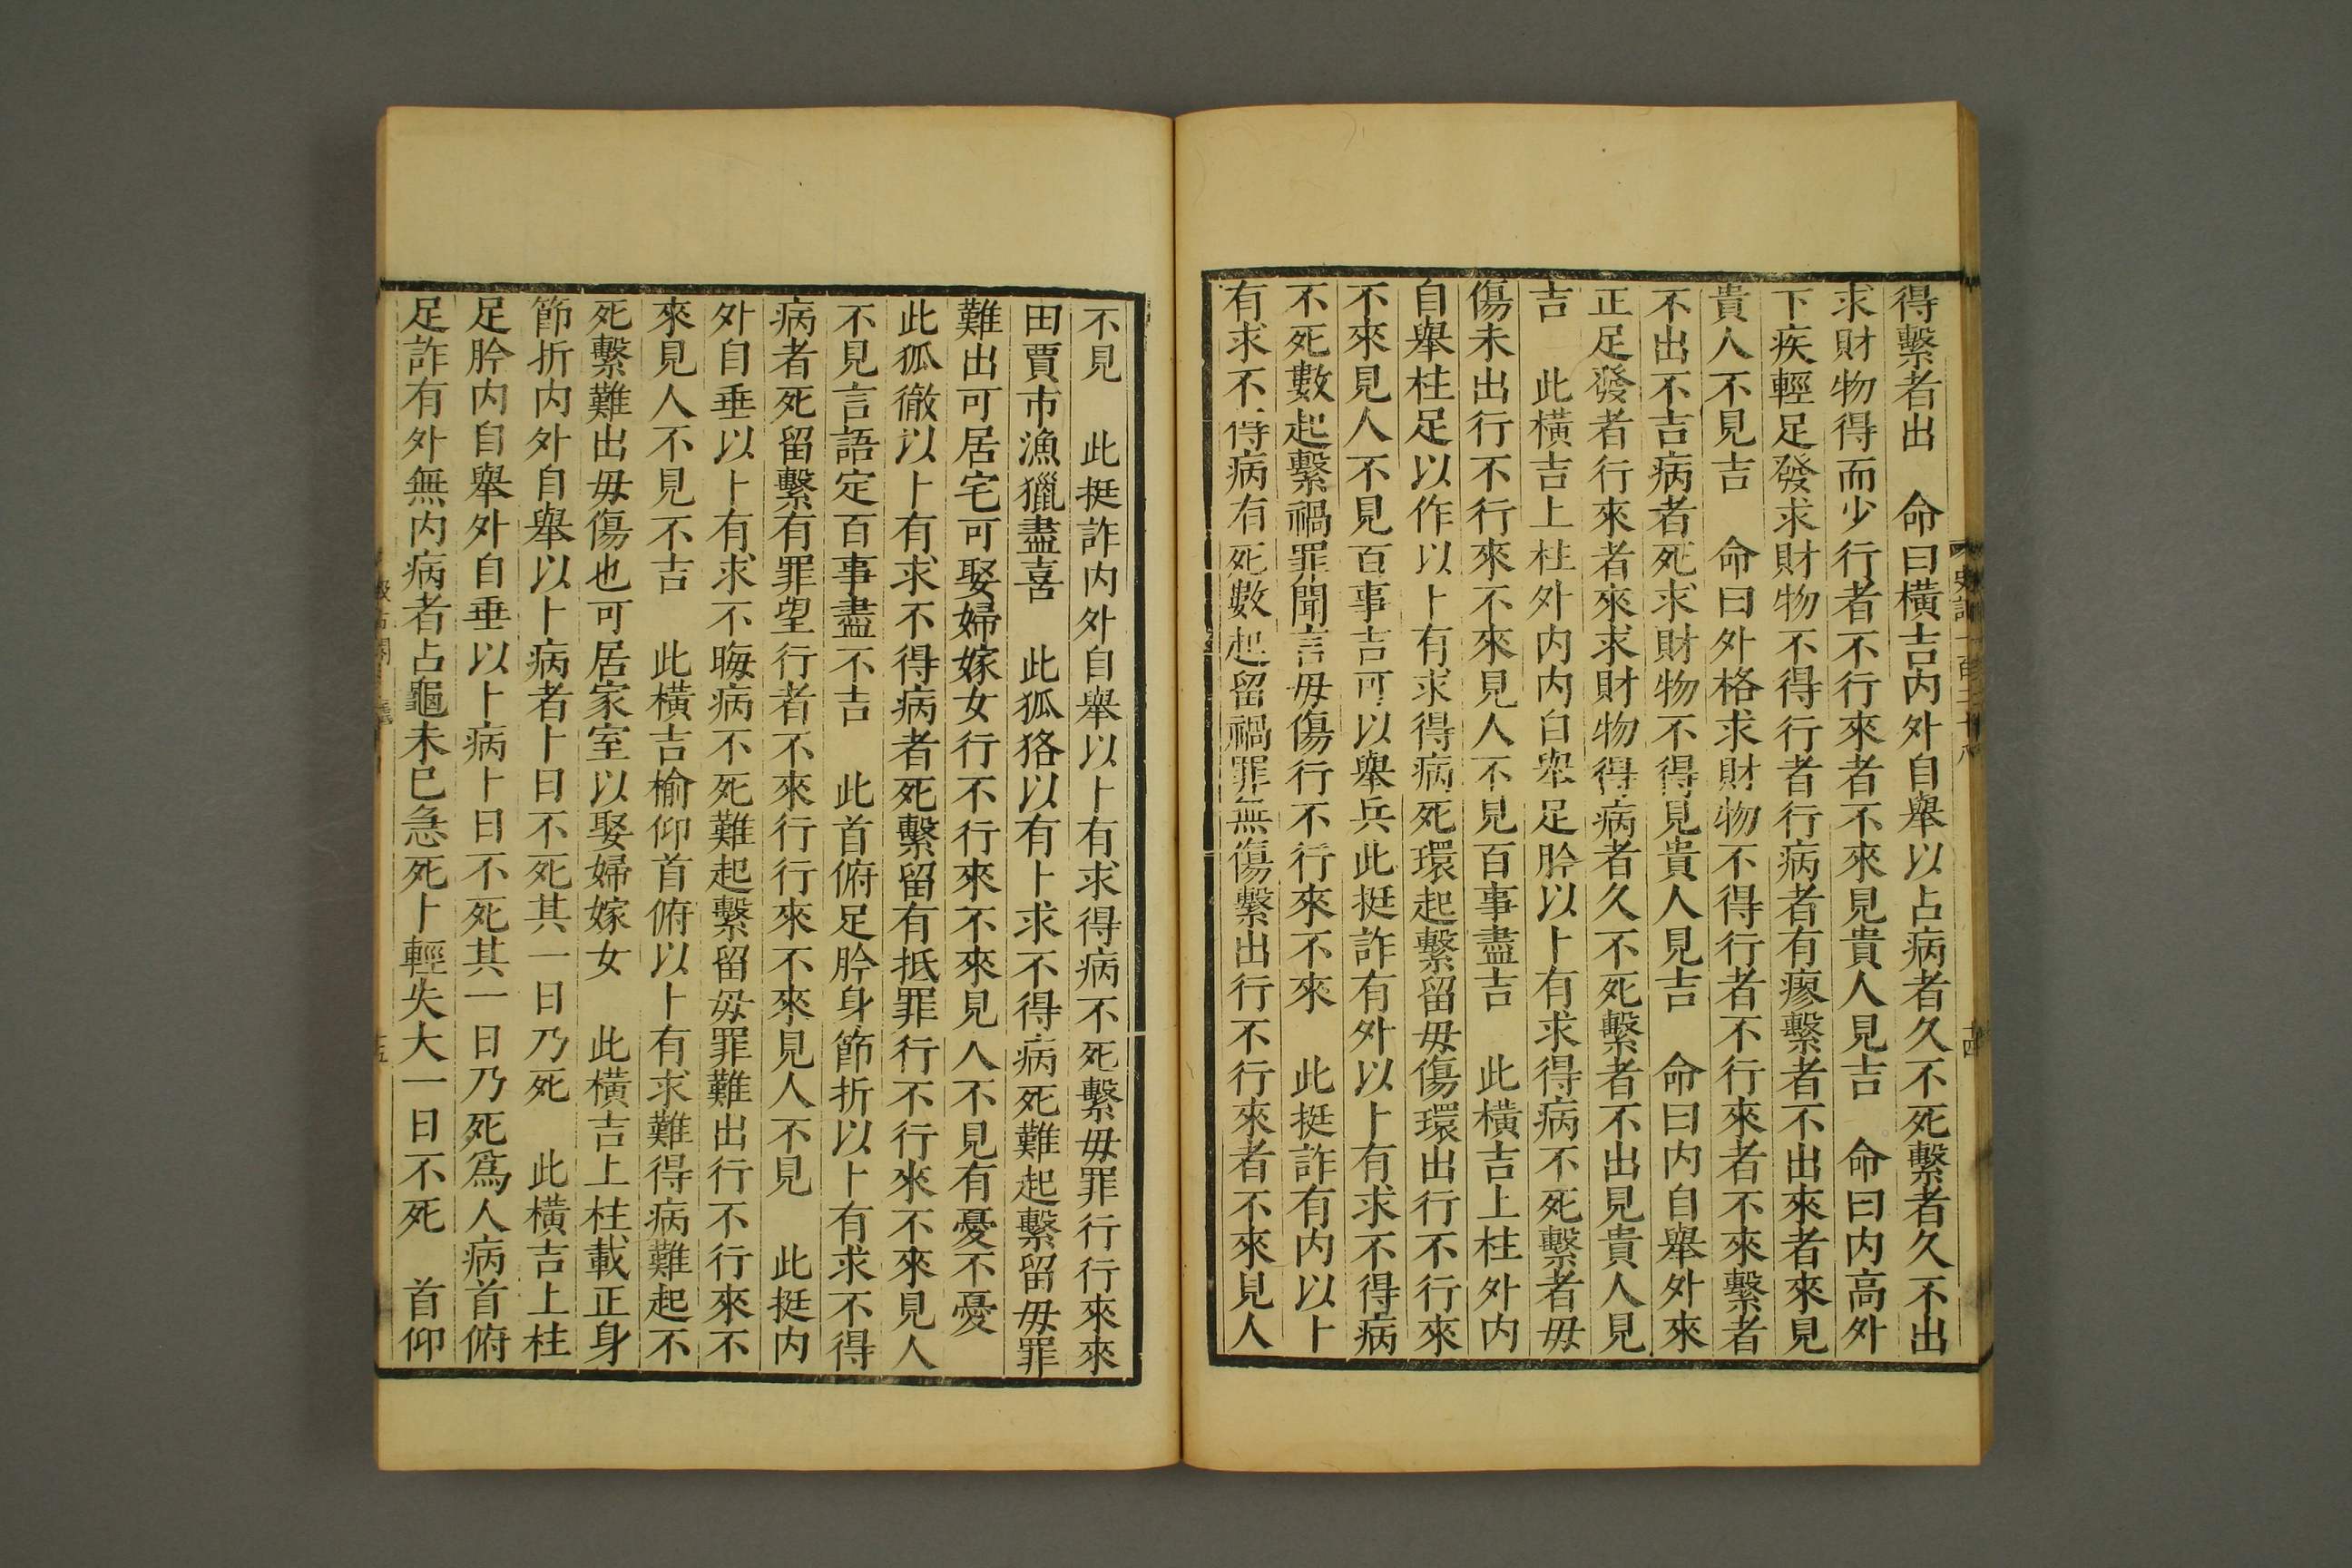 得繫者出　命曰橫吉内外自舉以占病者久不死繫者久不出
求財物得而少行者不行來者不來見貴人見吉　命曰内高外
下疾輕足發求財物不得行者行病者有瘳繫者不出來者來見
貴人不見吉　命曰外格求財物不得行者不行來者不來繫者
不出不吉病者死求財物不得見貴人見吉　命曰内自舉外來
正足發者行來者來求財物得病者久不死繫者不出見貴人見
吉　此橫吉上柱外内内自舉足肣以卜有求得病不死繫者毋
傷未出行不行來不來見人不見百事盡吉　此橫吉上柱外内
自舉柱足以作以卜有求得病死環起繫留毋傷環出行不行來
不來見人不見百事吉可以舉兵此挺詐有外以卜有求不得病
不死數起繫禍罪聞言毋傷行不行來不來　此挺詐有内以卜
有求不得病有死數起留禍罪無傷繫出行不行來者不來見人
史記一百二十八
十四
不見　此挺詐内外自舉以卜有求得病不死繫毋罪行行來來
田賈市漁獵盡喜　此狐狢以有卜求不得病死難起繫留毋罪
難出可居宅可娶婦嫁女行不行來不來見人不見有憂不憂
此狐徹以卜有求不得病者死繫留有抵罪行不行來不來見人
不見言語定百事盡不吉　此首俯足肣身節折以卜有求不得
病者死留繫有罪望行者不來行行來不來見人不見　此挺内
外自垂以卜有求不晦病不死難起繫留毋罪難出行不行來不
來見人不見不吉　此橫吉榆仰首俯以卜有求難得病難起不
死繫難出毋傷也可居家室以娶婦嫁女　此橫吉上柱載正身
節折内外自舉以卜病者卜日不死其一日乃死　此橫吉上柱
足肣内自舉外自垂以卜病卜日不死其一日乃死爲人病首俯
足詐有外無内病者占龜未巳急死卜輕失大一日不死　首仰